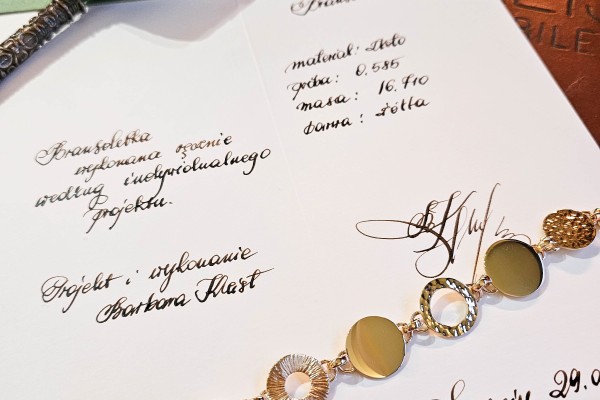 Bransoletka
wykonana ręcznie
według indywidualnego
projektu.
Projekt i wykonanie
Barbara
materiał: złoto
próba: 0.585
masa: 16.710
barwa: żółta
29.0
BILE